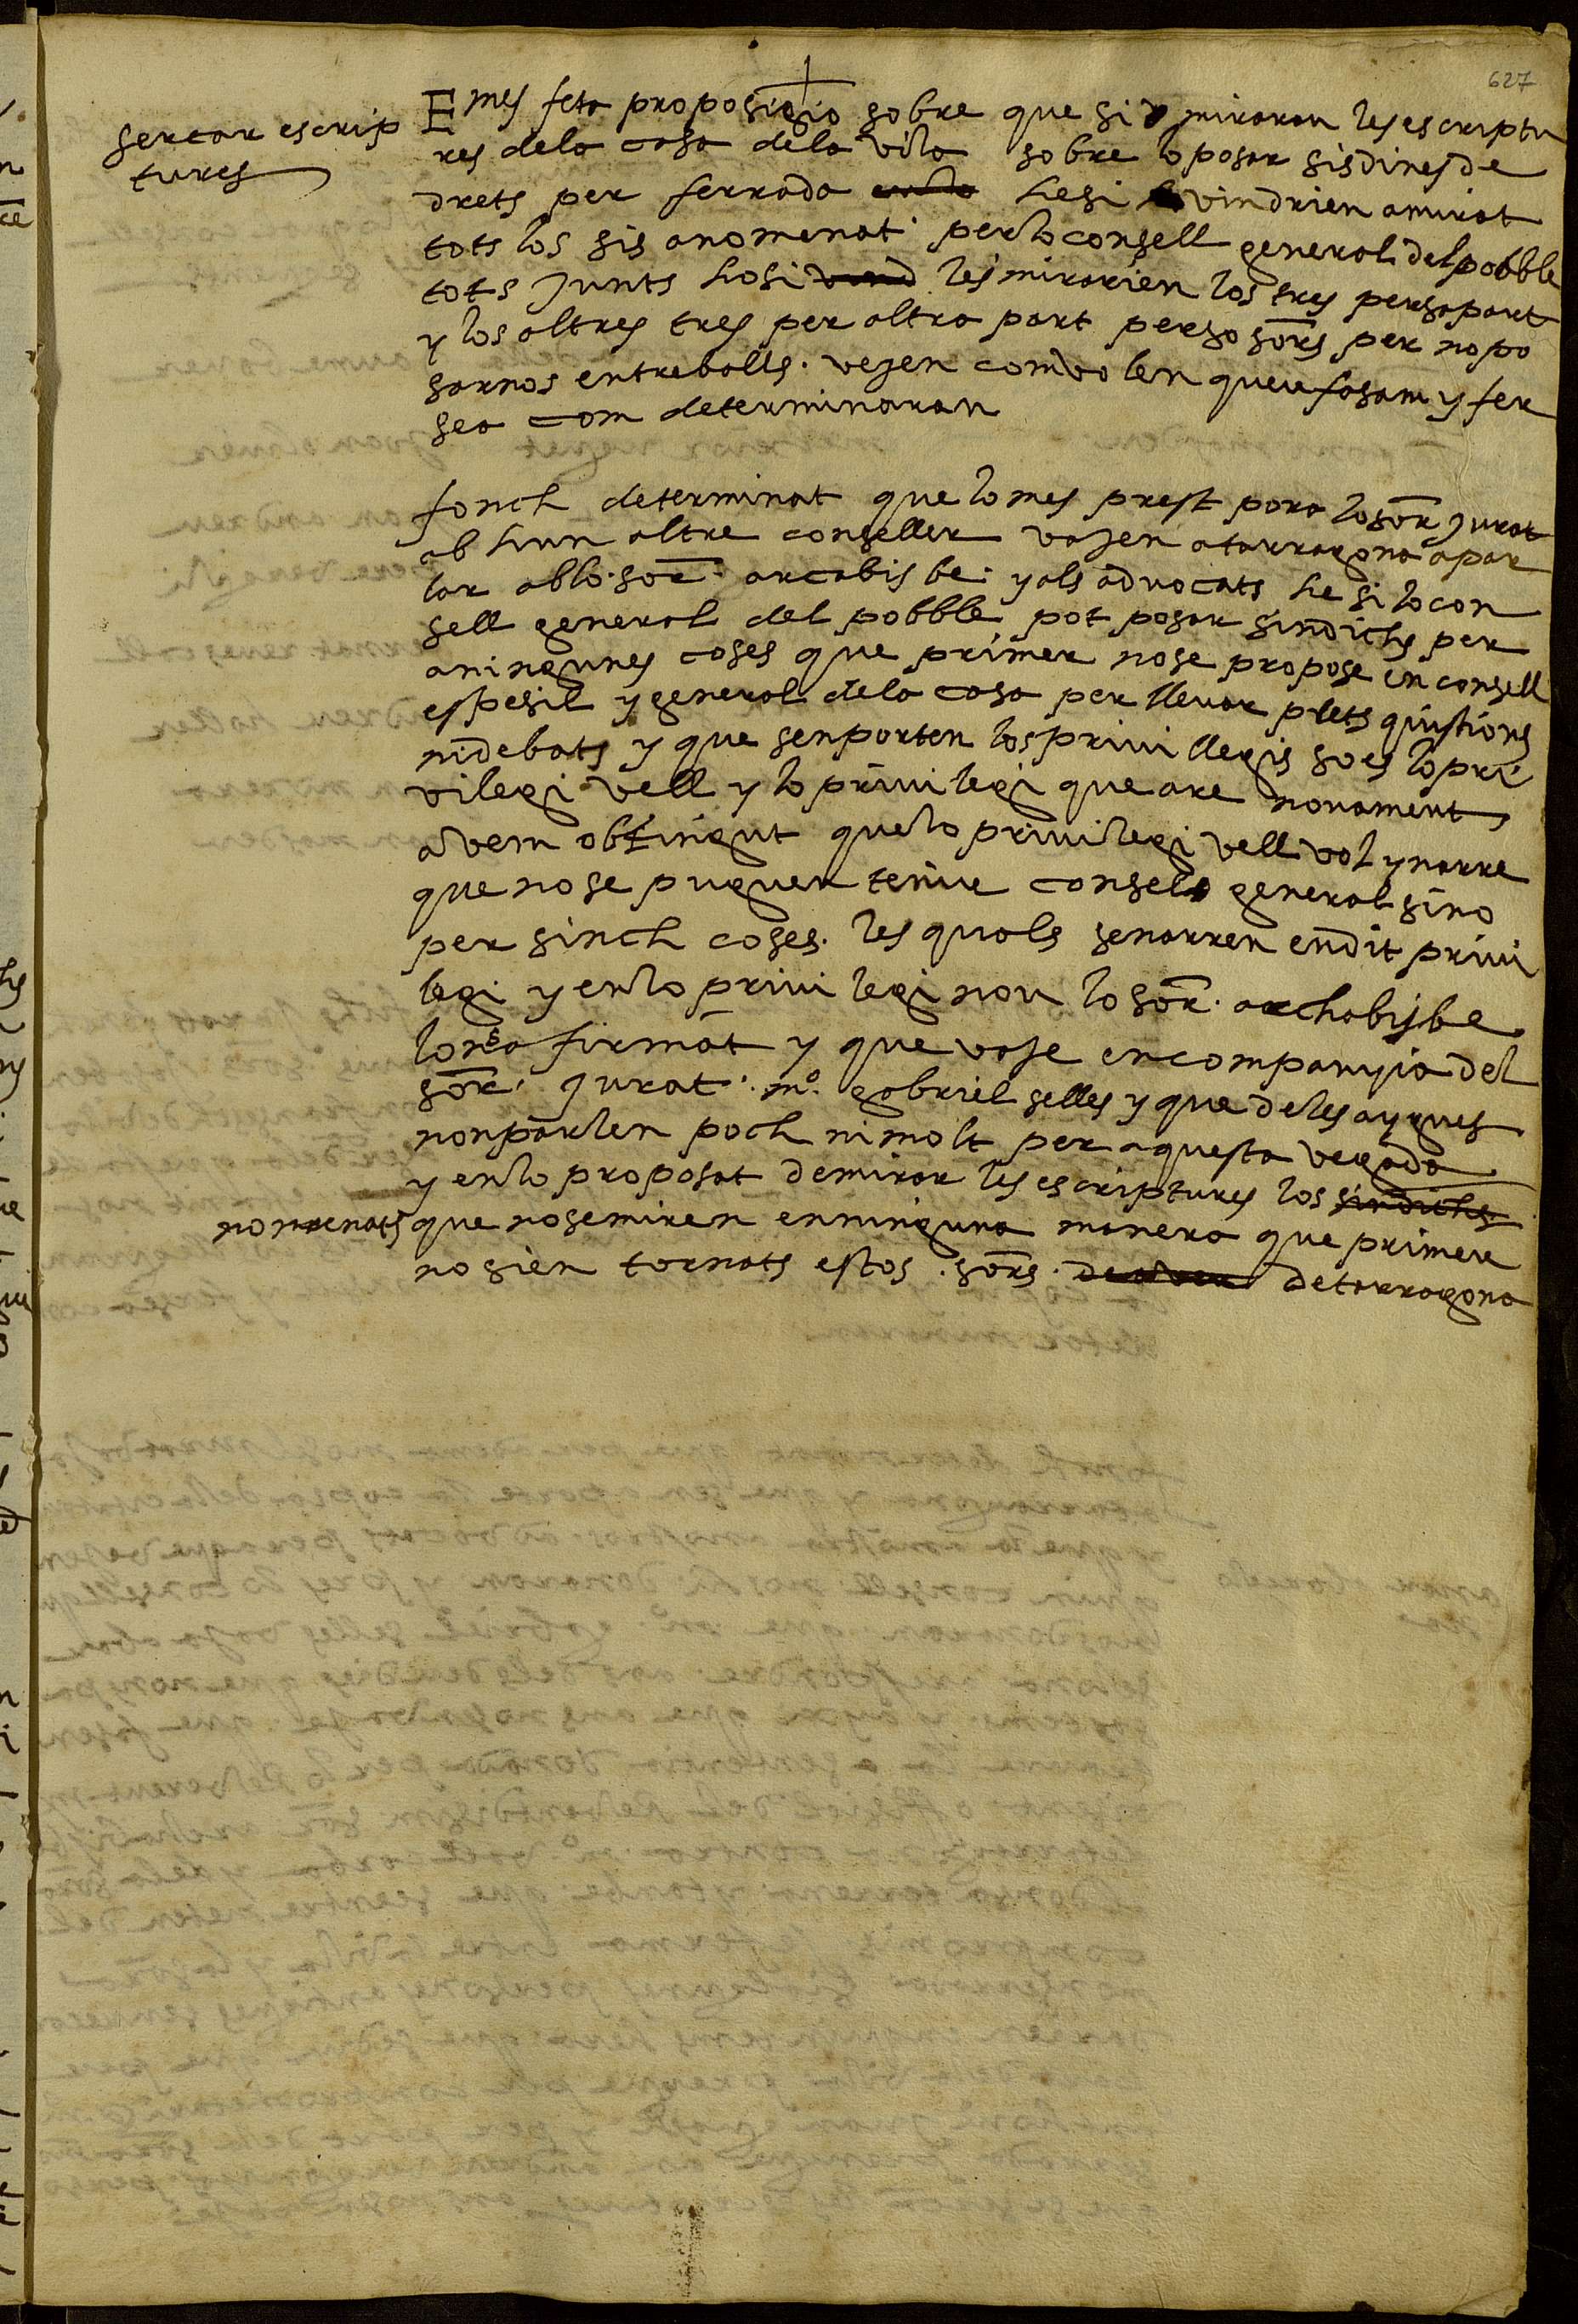 627
sercar escrip
tures
E mes feta proposisio sobre que si miraran les escriptu
res dela casa dela vila sobre lo posar sis dines de
drets per ferrada he si vindrien a mirar
tots los sis anomenat per lo consell general del pobble
tots junts ho si les mirarien los tres per sa part
y los altres tres per altra part per so sors per no po
sarnos entreballs . vejen com volen queu fasam y fer
sea com determinaran
fonch determinat que lo mes prest para lo sor jurat
ab hun altre conseller vajen a tarragona a par
lar ab lo sor arcabisbe y als advocats he si lo con
sell general del pobble pot posar sindichs per
aningunes coses que primer nose propose en consell
espesil y general dela casa per llevar plets quistions
ni debats y que senporten los privillegis so es lo pri
vilegi vell y lo privilegi que are novament
avem obtingut que lo privilegi vell vol y narre
que nose puguen tenir consel general sino
per sinch coses . les quals se narren en dit privi
legi y en lo privilegi nou lo sor . archabisbe
lonsa firmat y que vaje en companyia del
sor . jurat . mo . gabriel selles y que de les aygues
non parlen poch ni molt per aquesta vegada
y en lo proposat de mirar les escriptures los sindichs
nomenats que nose miren en ninguna manera que primer
no sien tornats estos . sors . de tarragona